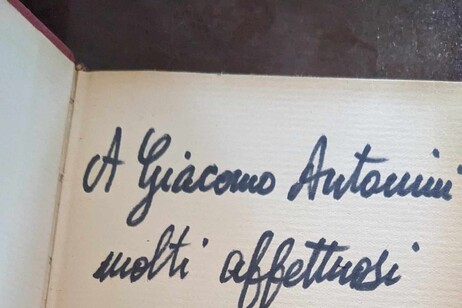 A Giacomo Antonini
molti affettuosi